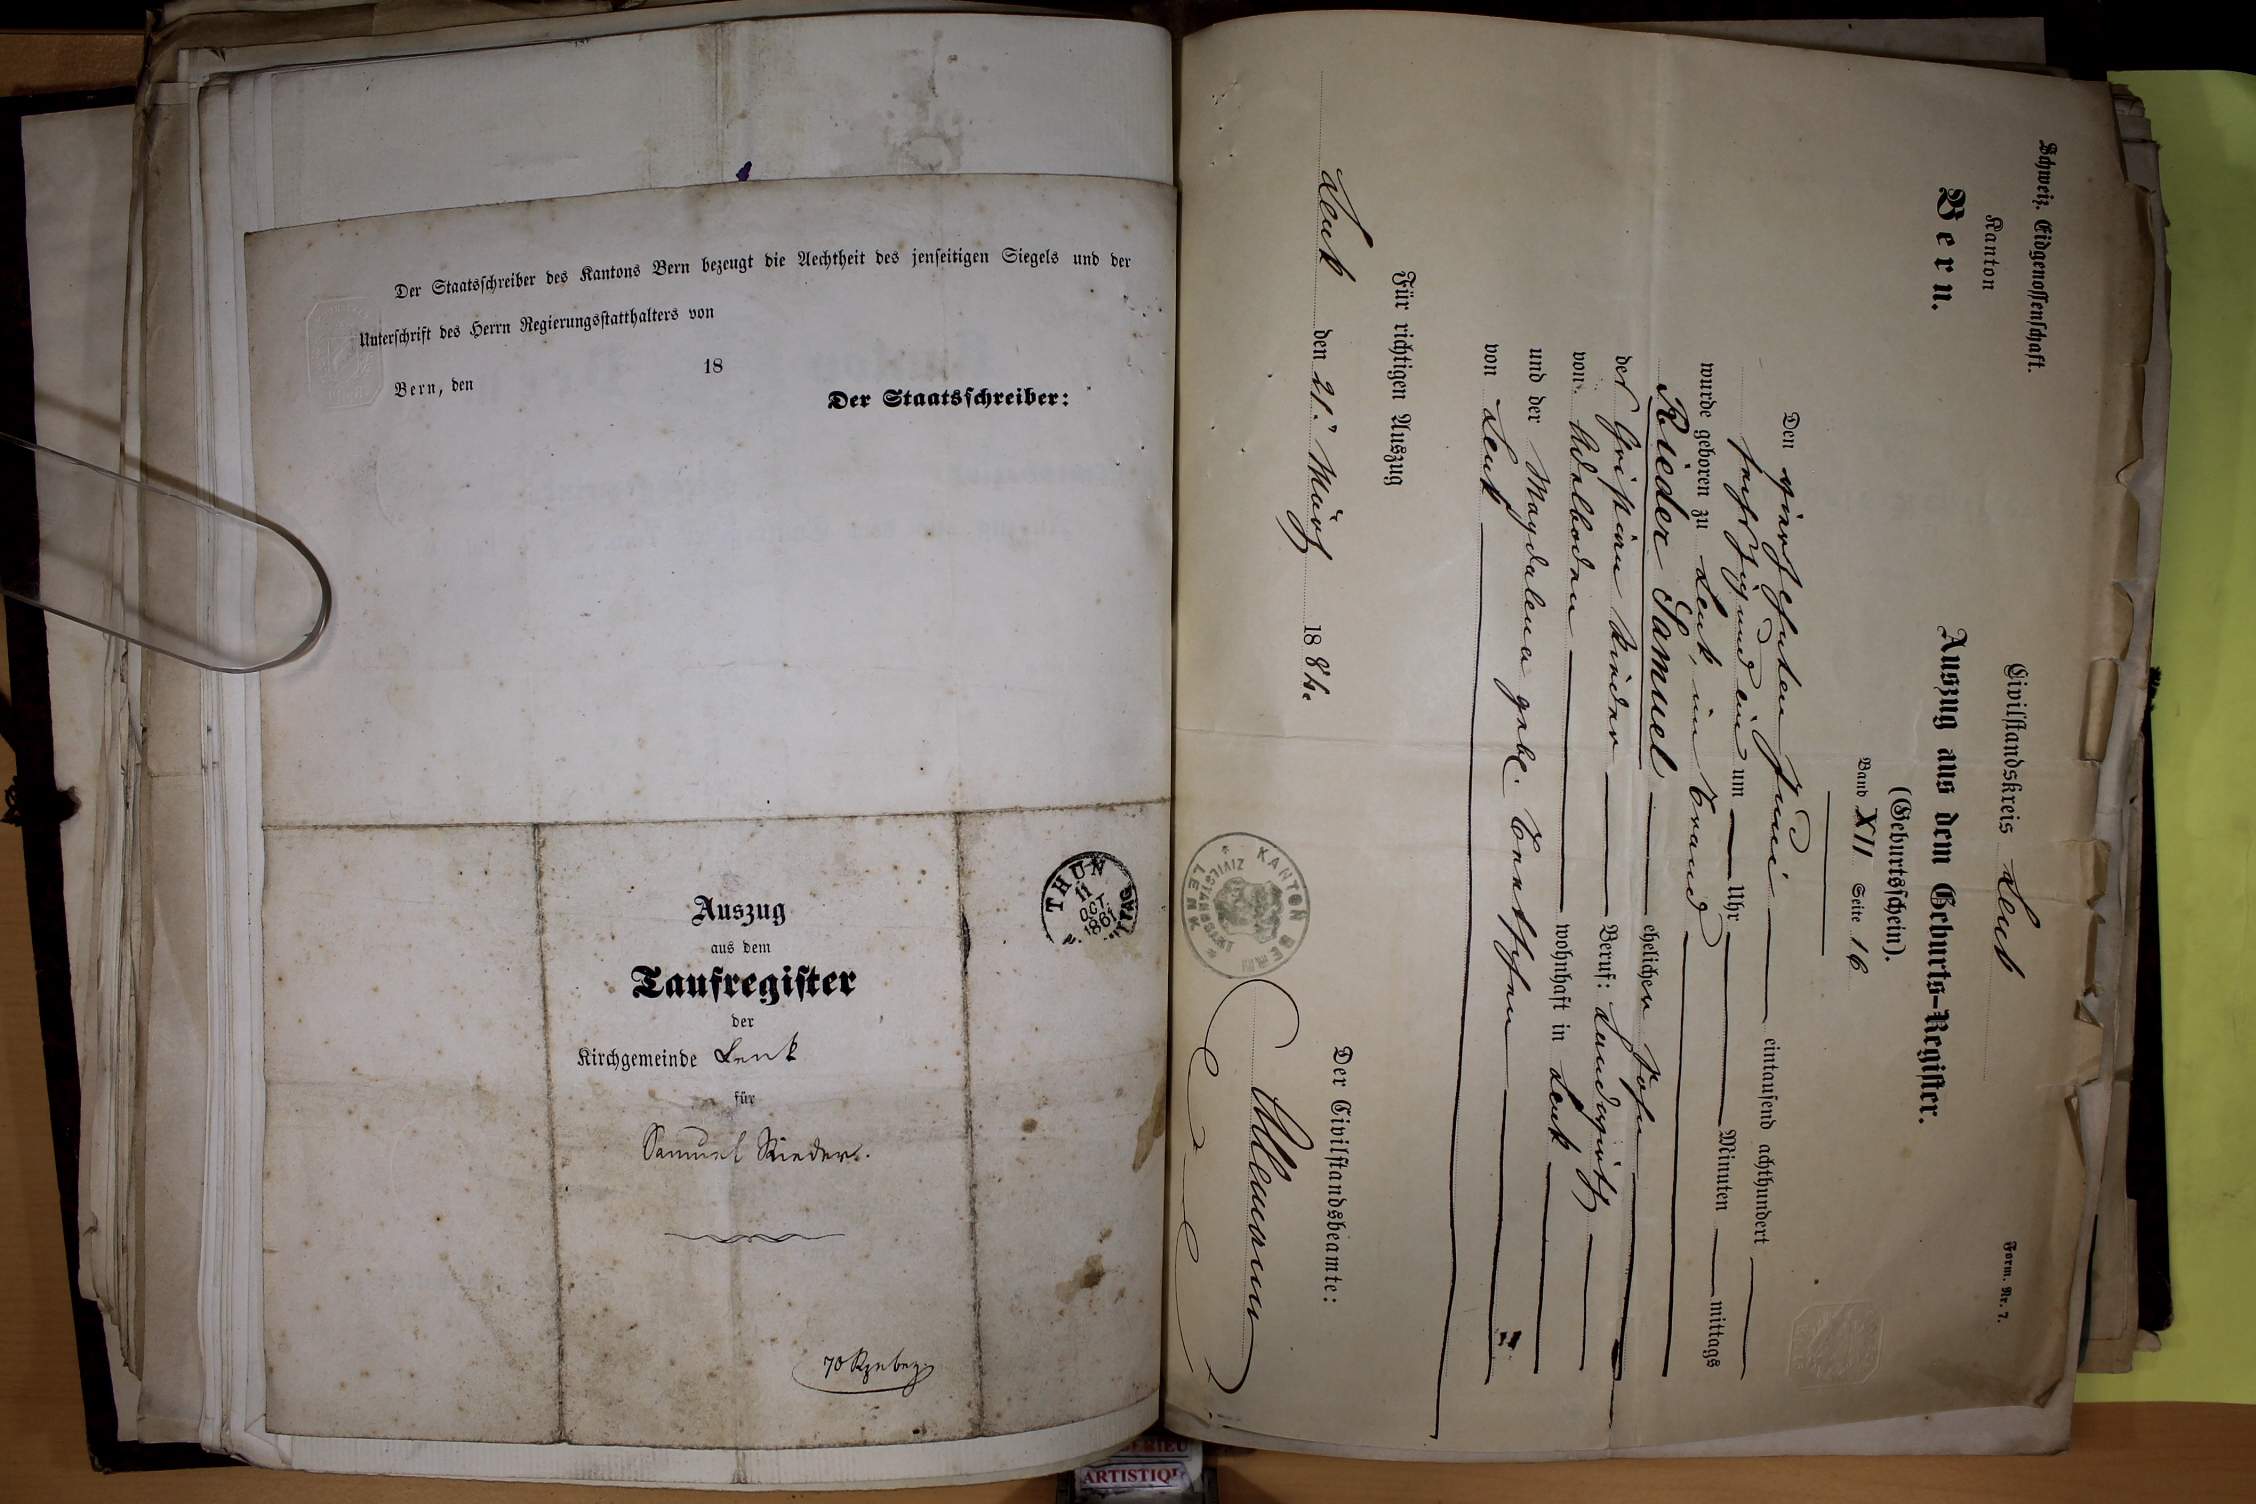 Der Staatsschreiber des Kantons Bern bezeugt die Aechtheit des jenseitigen Siegels und der
Unterschrift des Herrn Regierungsstatthalters von
Bern, den 18
Der Staatsschreiber:
THUN
11
OCT.
1861
Auszug
aus dem
Taufregister
der
Kirchgemeinde Lenk
für
Samuel Rieder.
70 Rp
Schweiz. Eidgenossenschaft.
Kanton
Bern.
Civilstandskreis Lenk
Form. Nr. 7.
Auszug aus dem Geburts-Register.
(Geburtsschein).
Band XII Seite 16
Den vierzehnten Juni eintausend achthundert
sechszig und ein um Uhr Minuten mittags
wurde geboren zu Lenk, im Brand
Rieder Samuel ehelicher Sohn
des Christian Rieder Beruf: Landwirth
von Adelboden wohnhaft in Lenk
und der Magdalena gebl.
von Lenk
Für richtigen Auszug
Lenk den 21. März 1884.
Der Civilstandsbeamte:
Allemann
KANTON BERN
CIVILSTANDSKREIS
LENK
ARTISTIQ